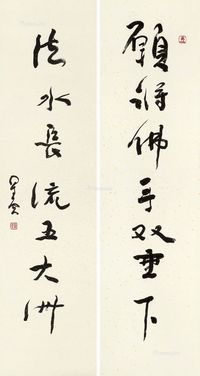 願將佛手双垂下
法水長流五大洲
星雲